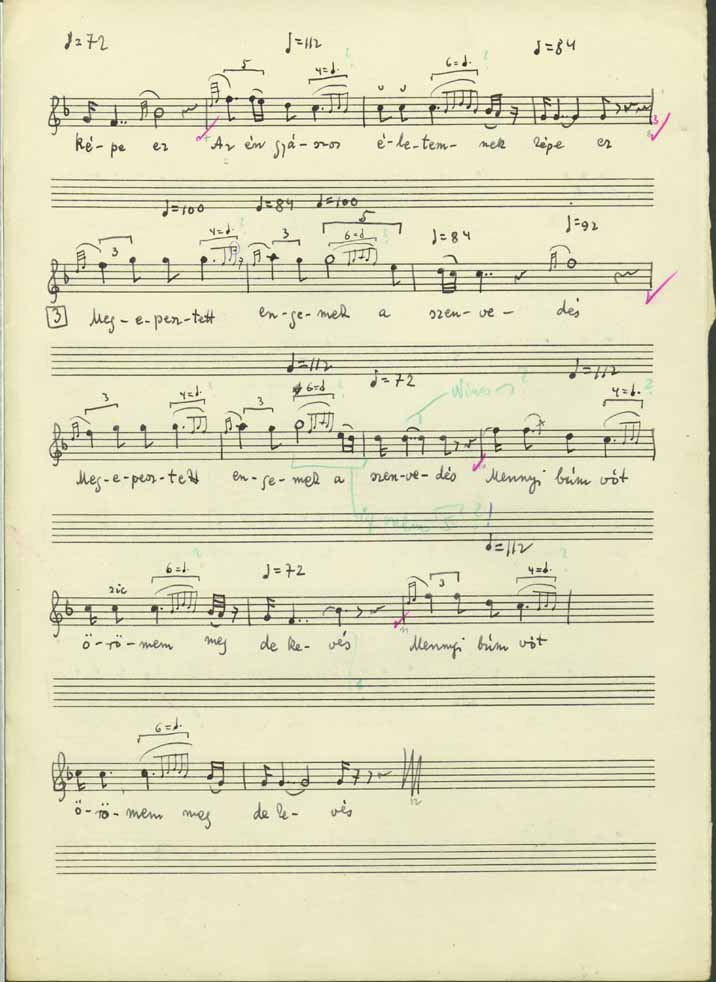 ♩=72 ♩=112 ♩=84
5 4=♩. 6=♩.
ké-pe ez Az én gyá-szos é-le-tem-nek képe ez
♩=100 ♩=84 ♩=100
3 4=♩. 3 5 6=♩ ♩=84 ♩=92
3 Meg-e-pesz-tett en-ge-mek a szen-ve-dés
♩=112 ♩=72 ♩=112
3 4=♩. 3 6=♩ 4=♩.
Meg-e-pesz-tett en-ge-mek a szen-ve-dés Mennyi búm vót
♩=112
6=♩. ♩=72 3 4=♩.
sic
ö-rö-mem meg de ke-vés Mennyi búm vót
6=♩.
ö-rö-mem meg de ke-vés
12